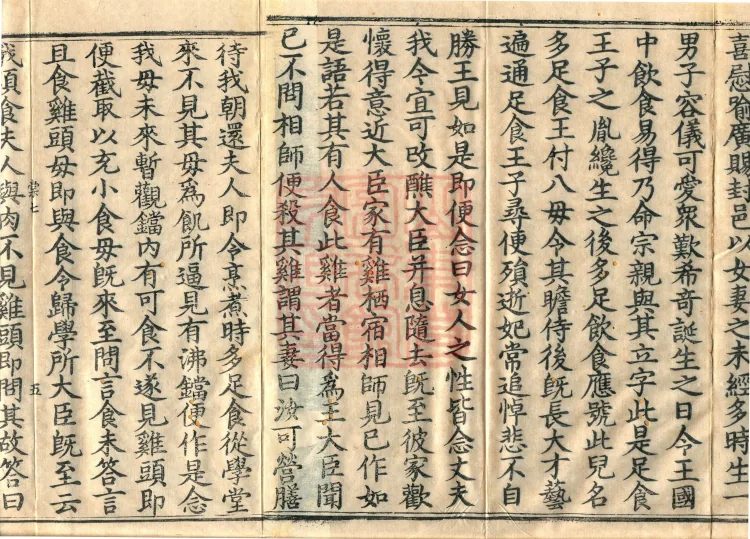 喜慰喻廣賜封邑以女妻之未經多時生一
男子容儀可愛衆歎希奇誕生之日令王國
中飲食易得乃命宗親與其立字此是足食
王子之胤纔生之後多足飲食應號此兒名
多足食王付八母令其瞻侍後既長大才藝
遍通足食王子尋便殞逝妃常追悼悲不自
勝王見如是即便念曰女人之性皆念丈夫
我今宜可改醮大臣并息隨去既至彼家歡
懷得意近大臣家有雞栖宿相師見已作如
是語若其有人食此雞者當得為王大臣聞
已不問相師便殺其雞謂其妻曰汝可營膳
待我朝還夫人即令烹煮時多足食從學堂
來不見其母為飢所逼見有沸鐺便作是念
我母未來暫觀鐺內有可食不遂見雞頭即
便截取以充小食母既來至問言食未答言
且食雞頭母即與食令歸學所大臣既至云
我須食夫人與肉不見雞頭即問其故答曰
棠七
五